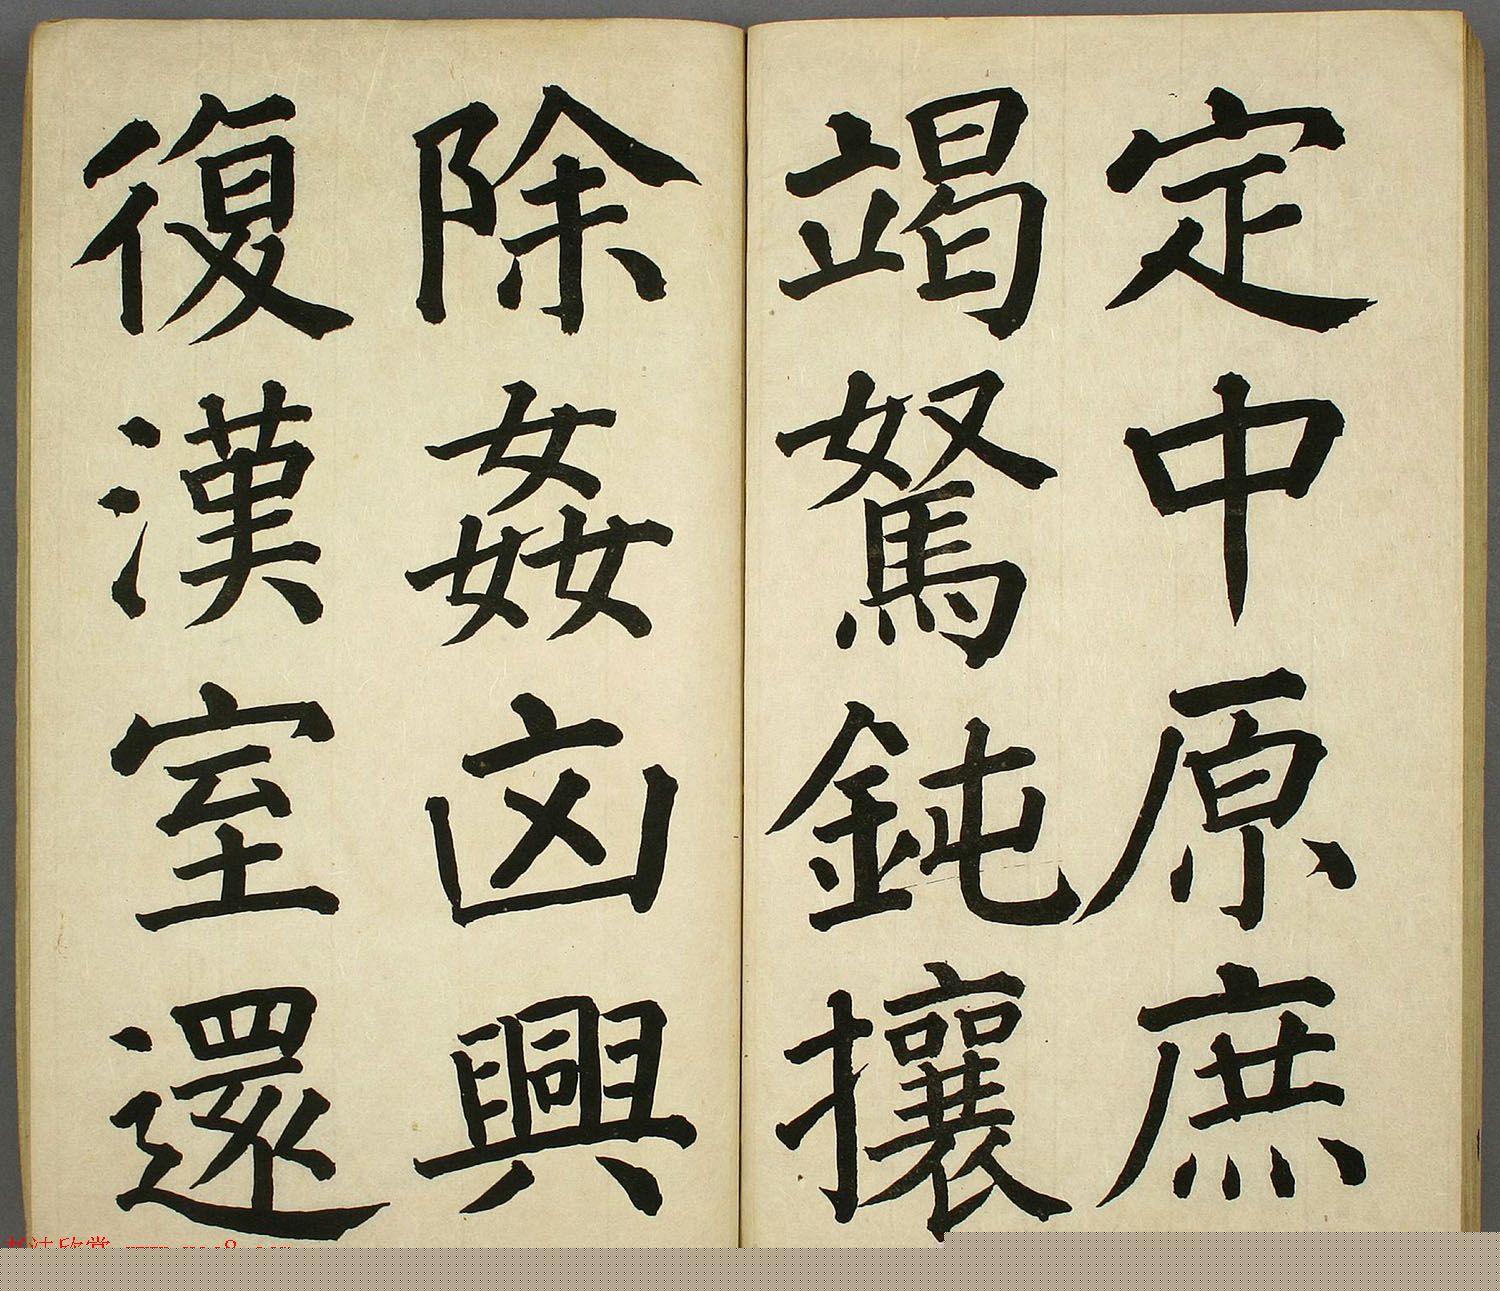 定中原庶
竭駑鈍攘
除姦凶興
復漢室還